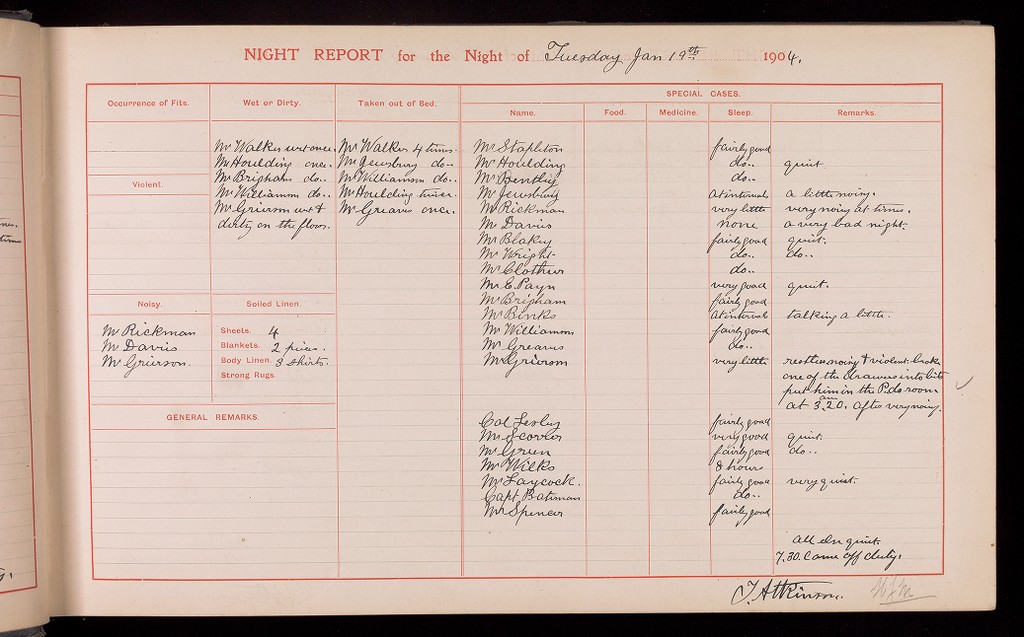 NIGHT REPORT for the Night of Tuesday Jan 19th 1904.
Occurrence of Fits.
Wet or Dirty.
Taken out of Bed.
SPECIAL CASES.
Name. Food. Medicine. Sleep. Remarks.
Mr Walker wet once Mr Walker 4 times. Mr Stapleton fairly good
Mr Houlding once. Mr Jewsbury do.. Mr Houlding do.. quiet
Mr Brigham do.. Mr Williamson do.. Mr Bentley do..
Violent.
Mr Williamson do.. Mr Houlding twice. Mr Jewsbury at intervals a little noisy.
Mr Grierson wet & Mr Greaves once. Mr Rickman very little very noisy at times.
dirty on the floor. Mr Davis none a very bad night.
Mr Blakey fairly good quiet.
Mr Wright do.. do..
Mr Clothier do..
Mr E. Payn very good quiet.
Mr Brigham fairly good
Noisy.
Soiled Linen.
Mr Binks at intervals talking a little.
Mr Rickman Sheets. 4 Mr Williamson fairly good
Mr Davis Blankets. 2 pieces. Mr Greaves do..
Mr Grierson. Body Linen. 3 shirts. Mr Grierson very little restless noisy & violent. broke
Strong Rugs.
one of the drawers into bits
put him in the P.do room
at 3.20. am After very noisy.
GENERAL REMARKS.
Col Lesley fairly good
Mr Scorer very good quiet.
Mr Green fairly good do..
Mr Wilks 8 hours
Mr Laycock. fairly good very quiet.
Capt Bateman do..
Mr Spencer fairly good
All else quiet.
7.30. Came off duty.
T. Atkinson.